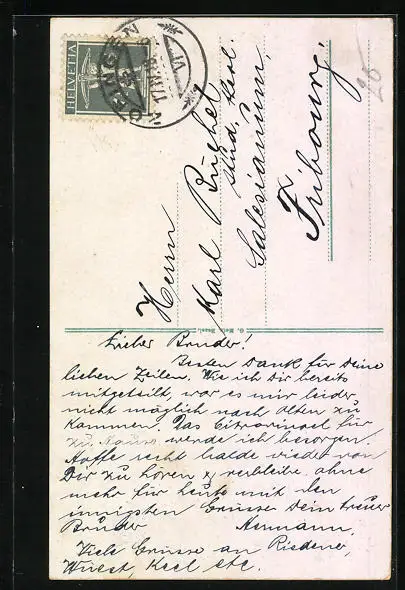 HELVETIA
Herrn
Karl Büchel
stud. theol.
Salesianum,
Fribourg.
26
Lieber Bruder!
Besten Dank für Deine
lieben Zeilen. Wie ich Dir bereits
mitgeteilt, war es mir leider
nicht möglich nach Olten zu
kommen. Das für
zu werde ich besorgen.
Hoffe recht balde wieder von
Dir zu hören & verbleibe ohne
mehr für heute mit den
innigsten Grüssen Dein treuer
Bruder Hermann,
Viele Grüsse an
Wuest, Keel etc.